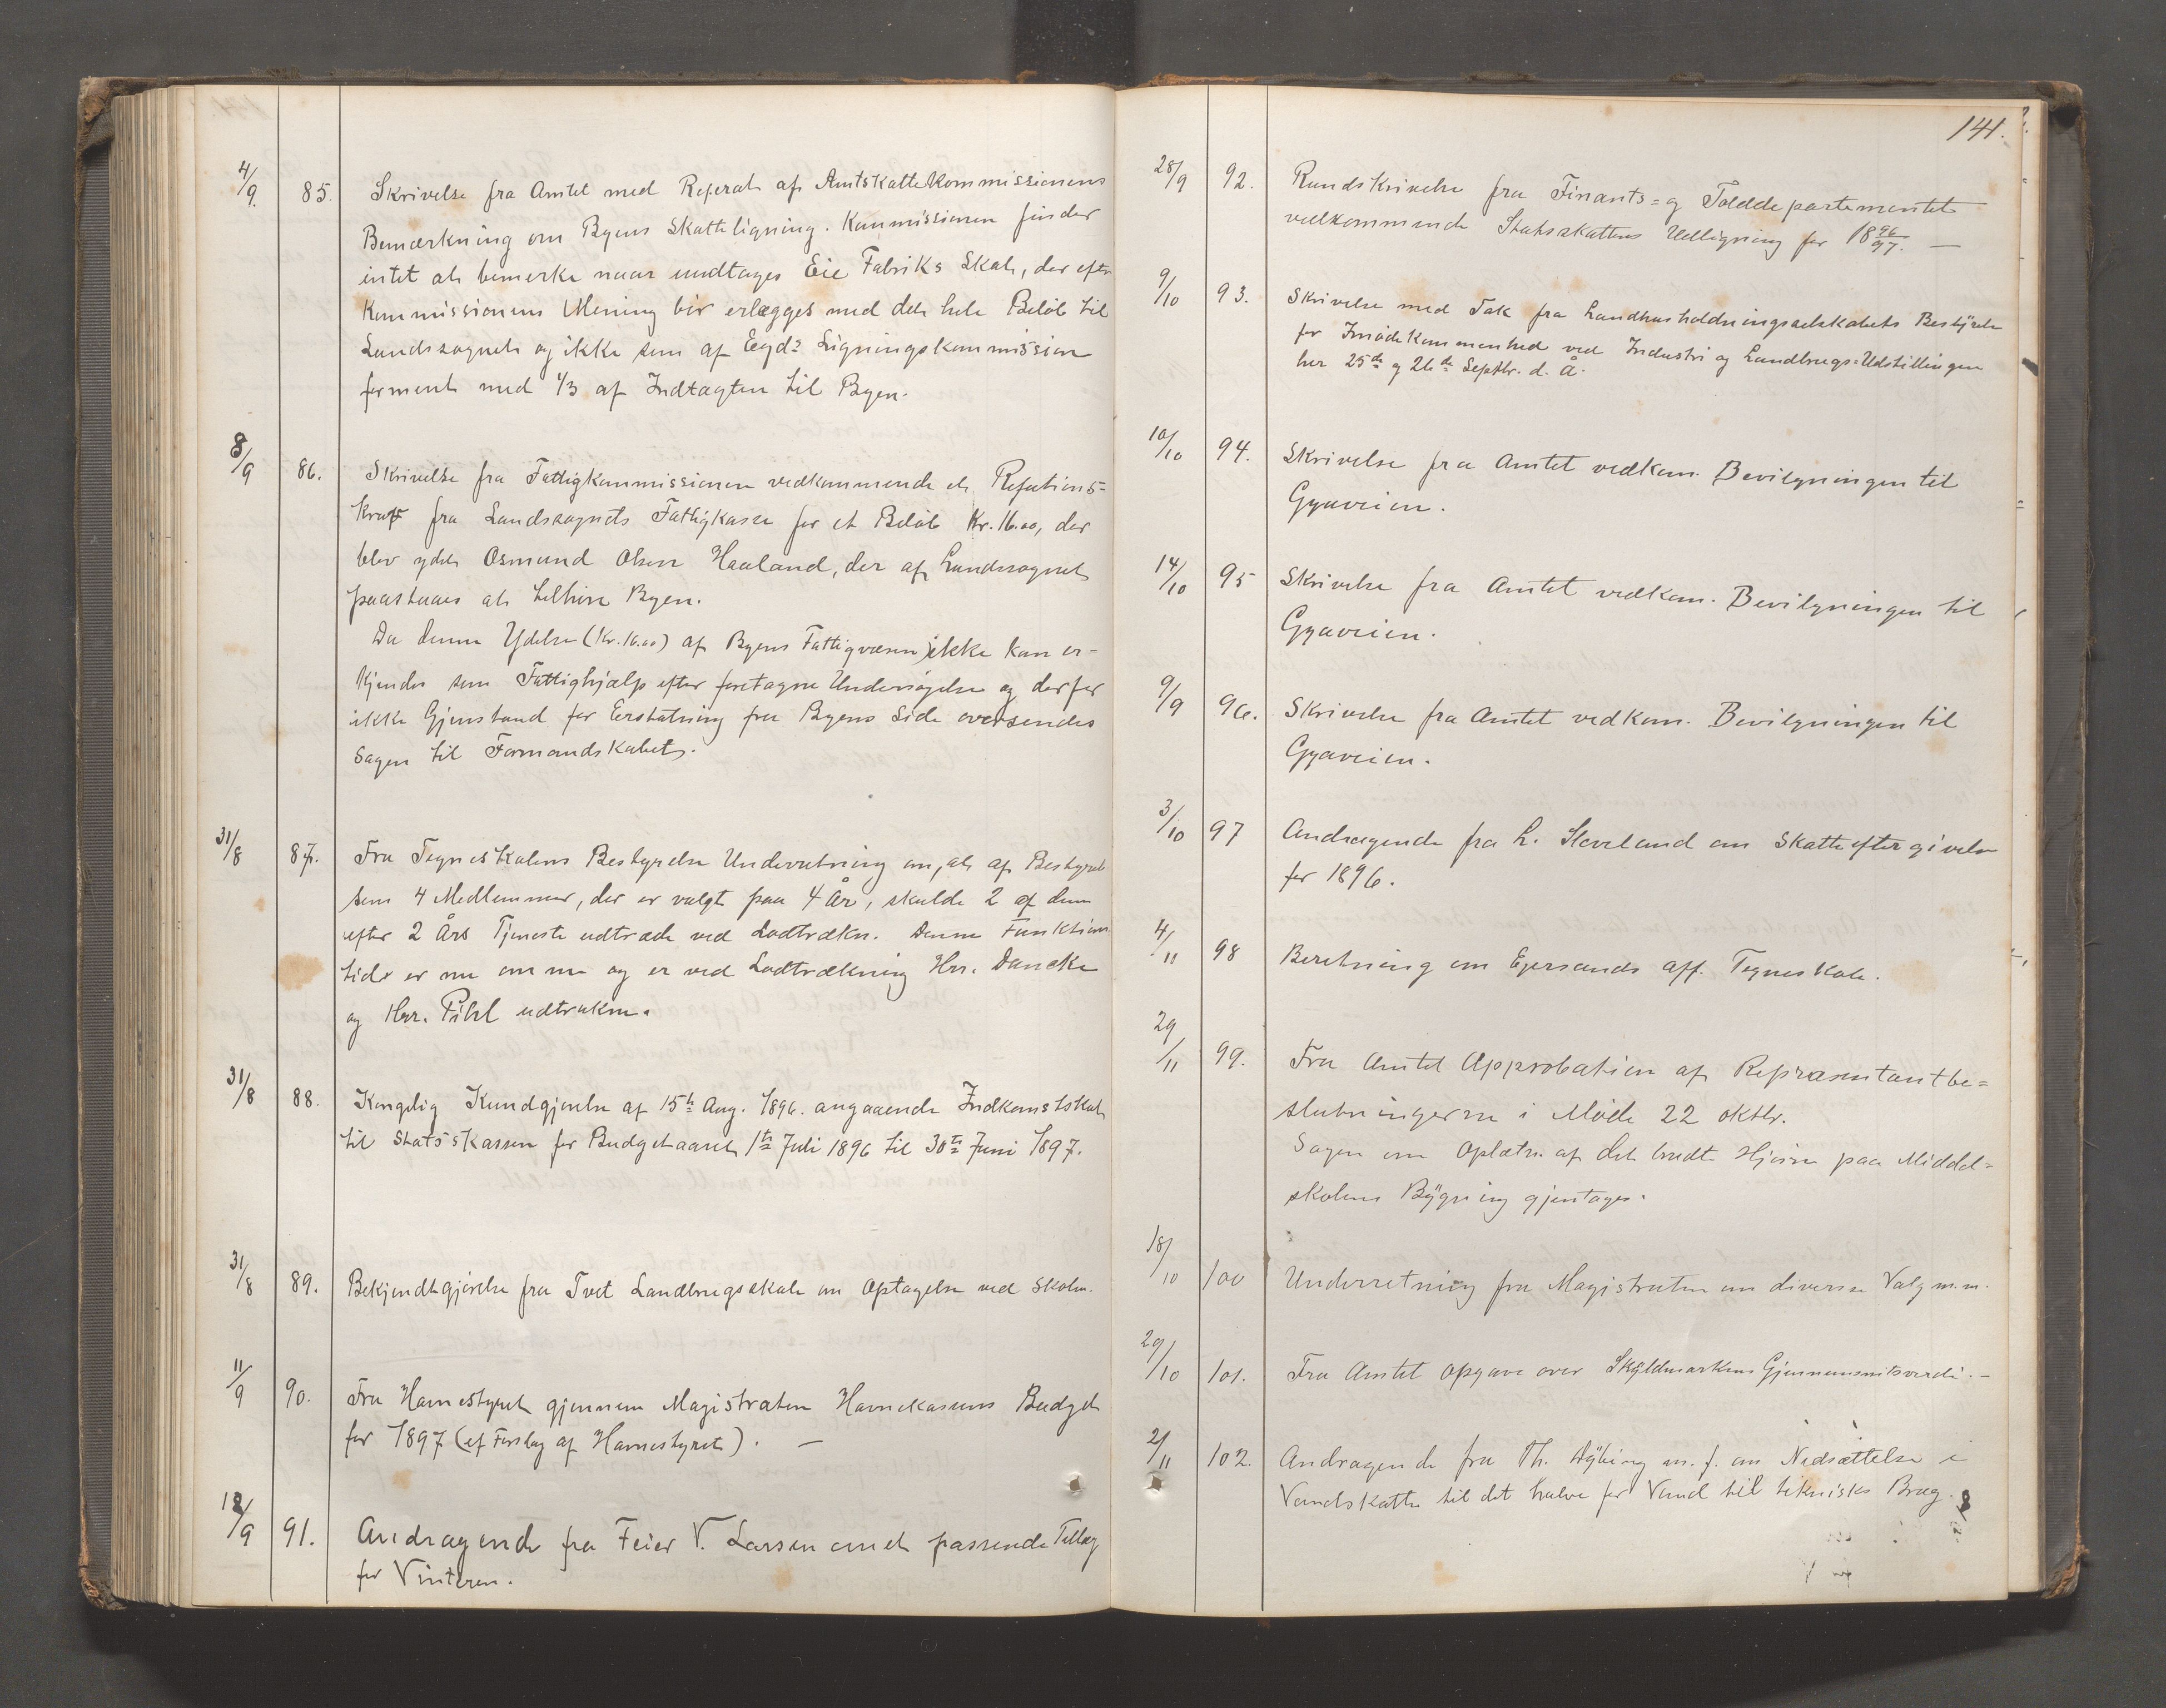 4/9. 85. Skrivelse fra Amtet med Referat af Amtskattekommissionens
Bemærkning om Byens Skatteligning. Kommissionen finder
intet at bemerke naar undtages Eie Fabriks Skat, der efter
Kommissionens Mening bør erlægges med det hele Beløb til
Landssognet og ikke som af Egds Ligningskommission
forment med 1/3 af Indtægten til Byen.
8/9 86. Skrivelse fra Fattigkommissionen vedkommende et Refutions=
krav fra Landssognets Fattigkasse for et Beløb Kr. 16.00, der
blev ydet Osmund Olsen Haaland, der af Landssognet
paastaaes at tilhøre Byen.
Da denne Ydelse (Kr. 16.00) af Byens Fattigvæsen ikke kan er-
kjendes som Fattighjælp efter foretagne Undersøgelse og derfor
ikke Gjenstand for Erstatning fra Byens Side oversendes
Sagen til Formandskabet.
31/8 87. Fra Tegneskolens Bestyrelse Underretning om, at af Bestyrel
sens 4 Medlemmer, der er valgt paa 4 År, skulde 2 af dem
efter 2 Års Tjeneste udtræde ved Lodtrækn. Denne Funktions
tid er nu omme og er ved Lodtrækning Hrr. Dancke
og Hrr. Pihl udtrukne.
31/8 88. Kongelig Kundgjørelse af 15de Aug. 1896. angaaende Indkomstskat
til Statsskassen for Budgetaaret 1ste Juli 1896 til 30te Juni 1897.
31/8 89. Bekjendtgjørelse fra Tvet Landbrugsskole om Optagelse ved Skolen.
11/9 90. Fra Havnestyret gjennem Magistraten Havnekassens Budget
for 1897 (ef Forslag af Havnestyret). —
12/9 91. Andragende fra Feier V. Larsen om et passende Tillæg
for Vinteren.
141.
28/9 92. Rundskrivelse fra Finants= og Tolddepartementet
vedkommende Statsskattens Udligning for 1896/97. —
9/10 93. Skrivelse med Tak fra Landhusholdningsselskabets Bestyrelse
for Imødekommenhed ved Industri og Landbrugs=Udstillingen
her 25de og 26de Septbr. d. Å.
10/10 94. Skrivelse fra Amtet vedkom. Bevilgningen til
Gyaveien.
14/10 95 Skrivelse fra Amtet vedkom. Bevilgningen til
Gyaveien.
9/9 96. Skrivelse fra Amtet vedkom. Bevilgningen til
Gyaveien.
3/10 97 Andragende fra L. Sleveland om Skatteeftergivelse
for 1896.
4/11 98 Beretning om Egersunds aff. Tegneskole.
29/11 99. Fra Amtet Approbation af Repræsentantbe=
slutningerne i Møde 22 Oktbr.
Sagen om Oplætn. af det brudte Hjørne paa Middel=
skolens Bygning gjentages.
18/10 100 Underretning fra Magistraten om diverse Valg m.m.
29/10 101. Fra Amtet Opgave over Skyldmarkens Gjennemsnitsverdi. —
2/11 102. Andragende fra Th. Dybing m. f. om Nedsættelse i
Vandskatten til det halve for Vand til teknisk Brug.